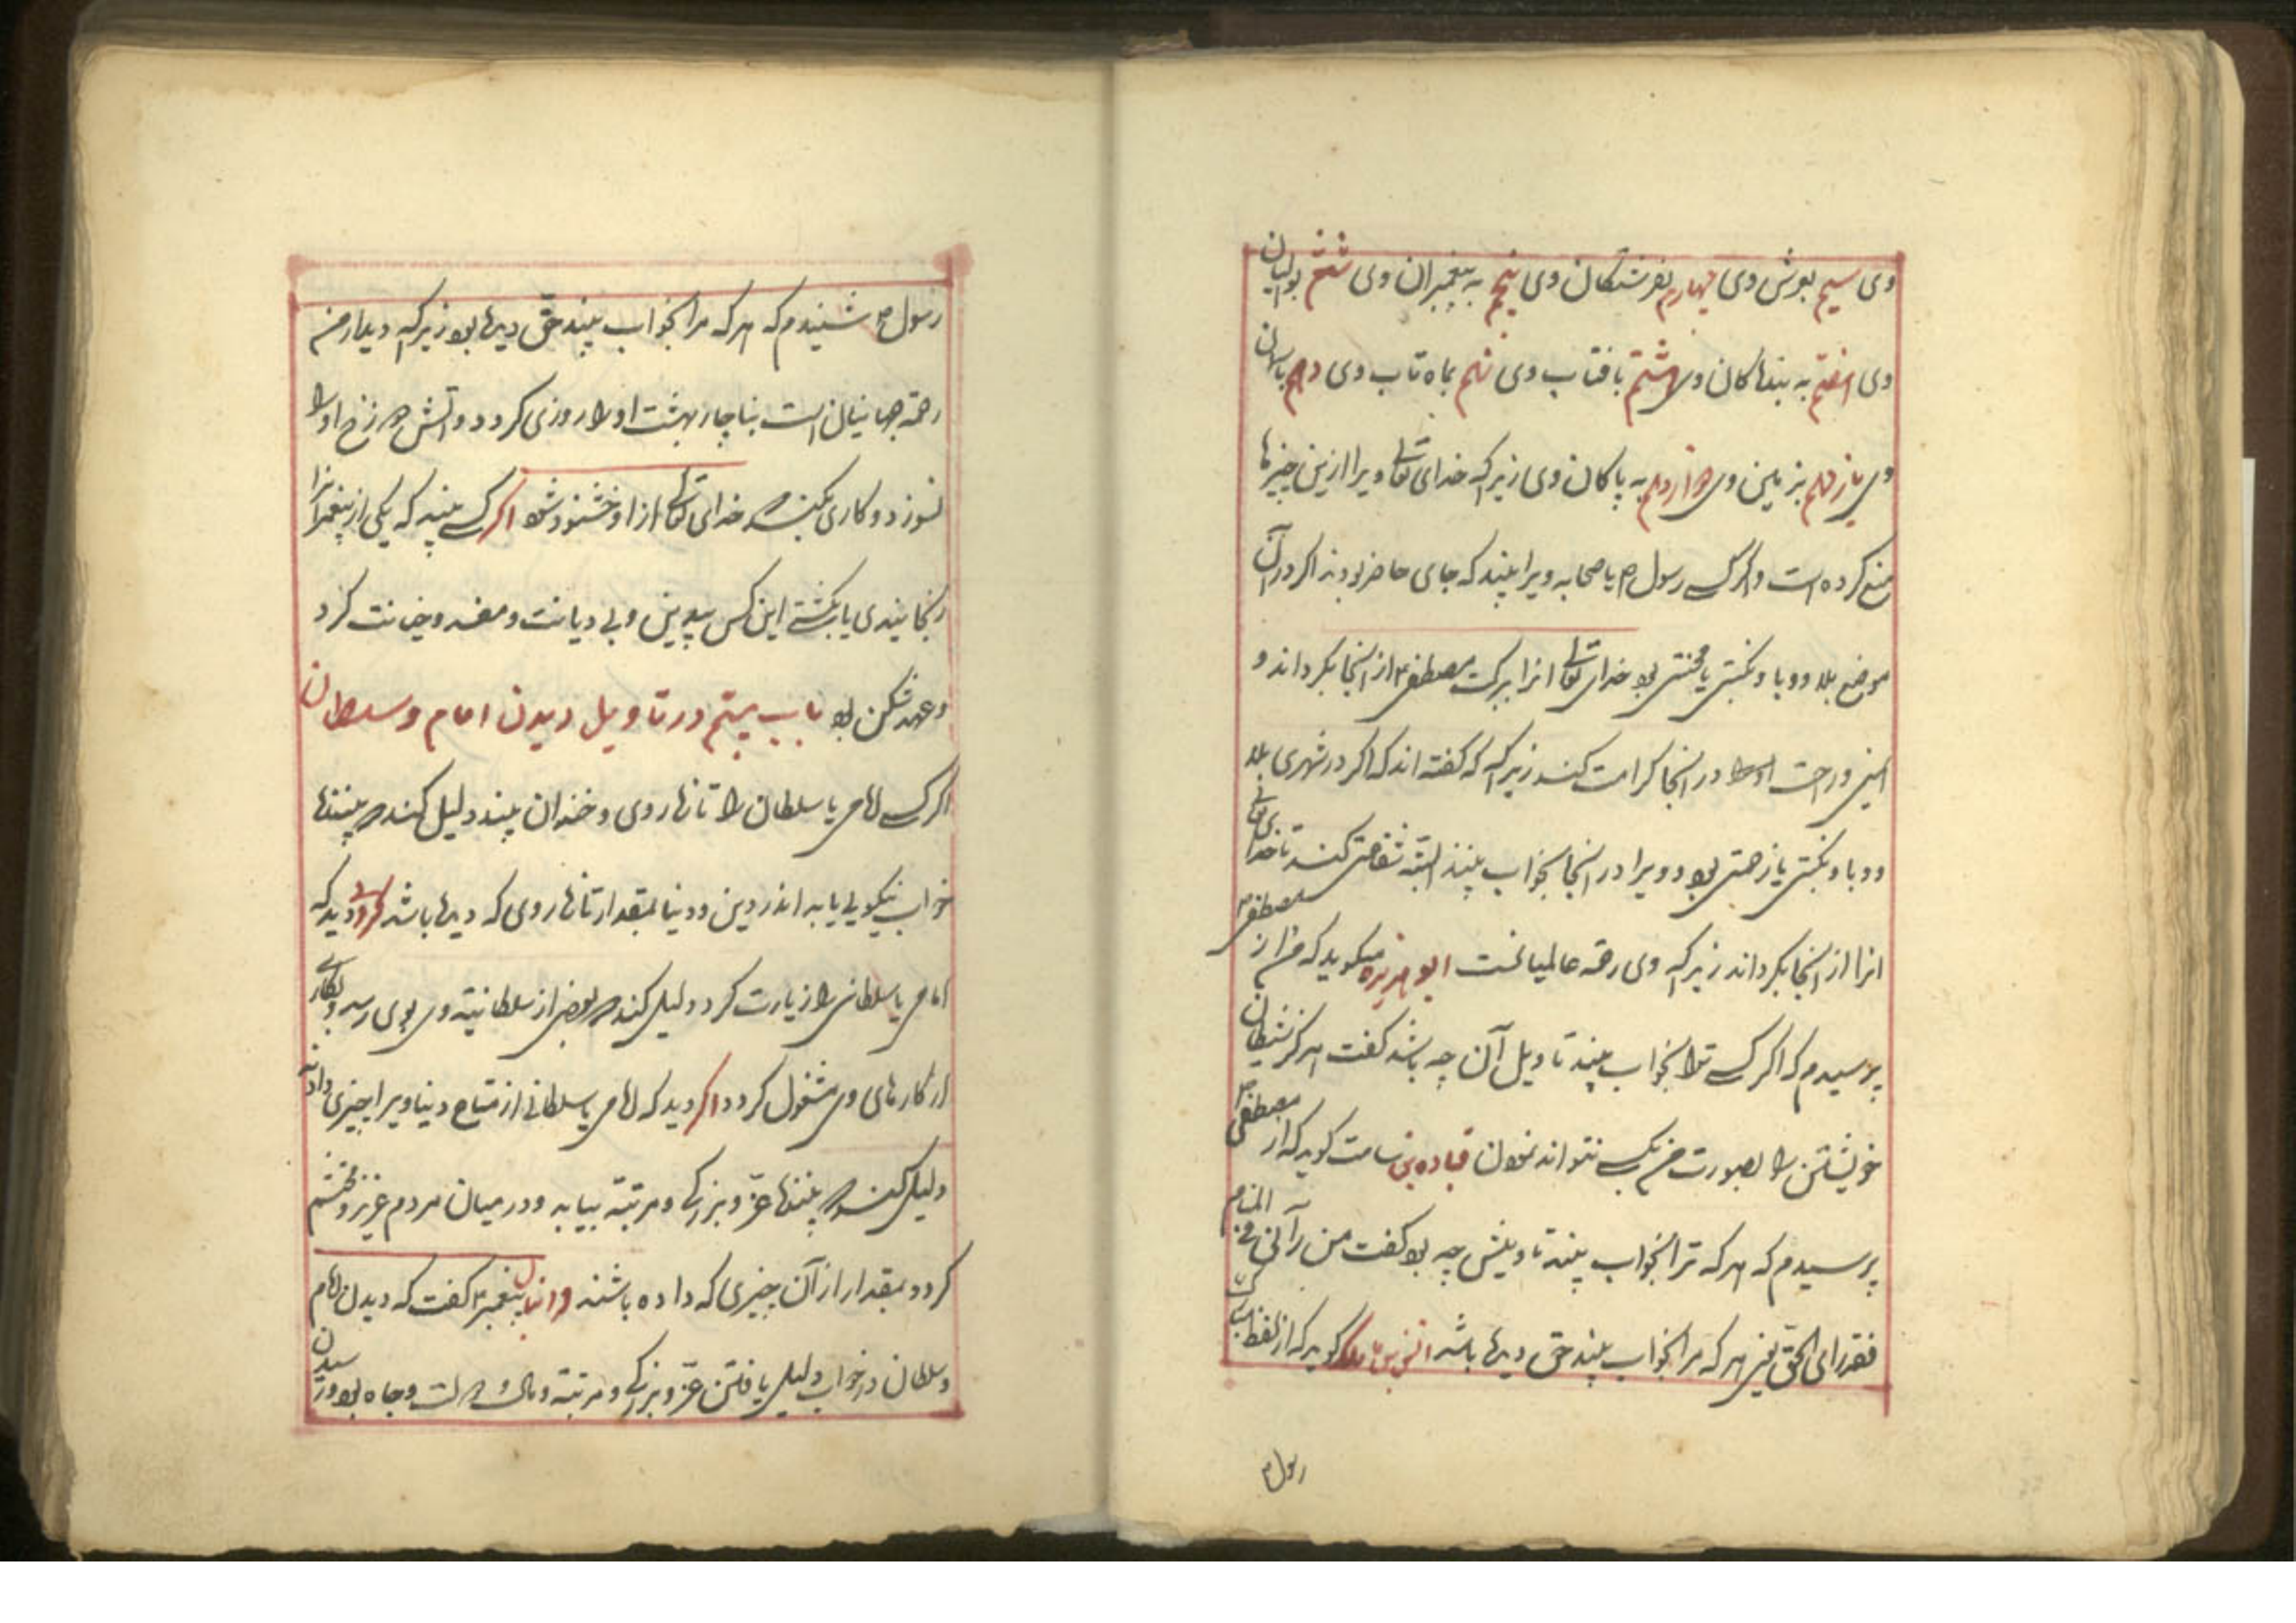 وی سیم بعرش وی چهارم بفرشتکان وی پنجم به پیغمبران وی ششم بولیان
وی هفتم به بندها کان وی هشتم بافتاب وی نهم بماه تاب وی دهم باسمان
وی یازدهم بزمین وی دوازدهم به پاکان وی زیرا که خدای تعالی ویرا ازین چیزها
منع کرده است و اکر کسی رسول م یا صحابه ویرا بیند که جای حاضر بودند اکر در آن
موضع بلا و وبا و نکبتی یا محنتی بود خدای تعالی انرا ببرکت مصطفی م از انجا بکرداند و
ایمنی و راحت اورا در انجا کرامت کند زیرا که کفته اند که اکر در شهری بلا
و وبا و نکبتی یا زحمتی بود و ویرا در انجا بخواب بینند البته شفاعتی کند تا خدای تعالی
انرا از انجا بکرداند زیرا که وی رحمة عالمیانست ابو هریره میکوید که من از مصطفی م
پرسیدم که اکر کسی ترا بخواب بیند تاویل آن چه باشد کفت هرکز شیطان
خویشتن را بصورت من بکسی نتواند نمودن قباده بن سامت کوید که از مصطفی م
پرسیدم که هرکه ترا بخواب بیند تاویلش چه بود کفت من رآنی فی المنام
فقد رای الحق یعنی هرکه مرا بخواب بیند حق دیده باشد انس بن مالک کوید که از لفظ
رسول م
رسول م شنیدم که هرکه مرا بخواب بیند حق دیده بود زیرا که دیدار من
رحمة جهانیان است بناچار بهشت اورا روزی کردد و آتش دوزخ اورا
نسوزد و کاری بکند که خدای تعالی ازو خشنود شود اکر کسی بیند که یکی از پیغمبرانرا
رنجانیدی یا بکشتی این کس بیدین و بی دیانت و مفسد و خیانت کرد
و عهد شکن بود باب بیستم در تاویل دیدن امام و سلطان
اکر کسی امامی یا سلطان را تازه روی و خندان بیند دلیل کند که بیننده
خواب نیکویی یابد اندر دین و دنیا بمقدار تازه روی که دیده باشد اکر کسی دید که
امامی یا سلطانی را زیارت کرد دلیل کند که بعضی از سلطانیة وی بوی رسد و بکاری
از کارهای وی مشغول کردد اکر دید که امامی یا سلطانی از متاع دنیا ویرا چیزی دادند
دلیل کند که بیننده عز و بزرکی و مرتبة بیابد و در میان مردم عزیز و محتشم
کردد بمقدار از آن چیزی که داده باشند دانیال پیغمبر م کفت که دیدن امام
و سلطان در خواب دلیل یافتن عز و بزرکی و مرتبة و مال و دولت و جاه بود و رسیدن